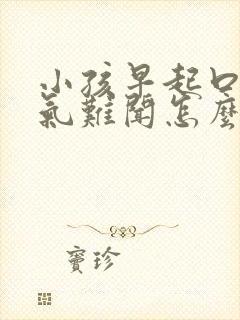 小孩早起口
氣難聞怎麼
寶珍